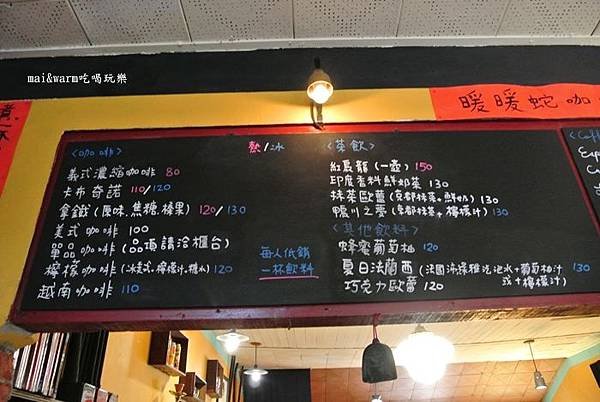 mai&warm吃喝玩樂
暖暖蛇咖
<咖啡> 熱/冰
義式濃縮咖啡 80
卡布奇諾 110/120
拿鐵(原味.焦糖.榛果) 120/130
美式咖啡 100
單品咖啡(品項請洽櫃台)
檸檬咖啡(冰美式+檸檬汁+糖水) 120
越南咖啡 110
每人低銷
一杯飲料
<茶飲>
紅烏龍(一壺) 150
印度香料鮮奶茶 130
抹茶歐蕾(京都抹茶+鮮奶) 130
鴨川之夢(京都抹茶+檸檬汁) 130
<其他飲料>
蜂蜜葡萄柚 120
夏日法蘭西(法國沛綠雅泡泡水+葡萄柚汁 130
或+檸檬汁)
巧克力歐蕾 120